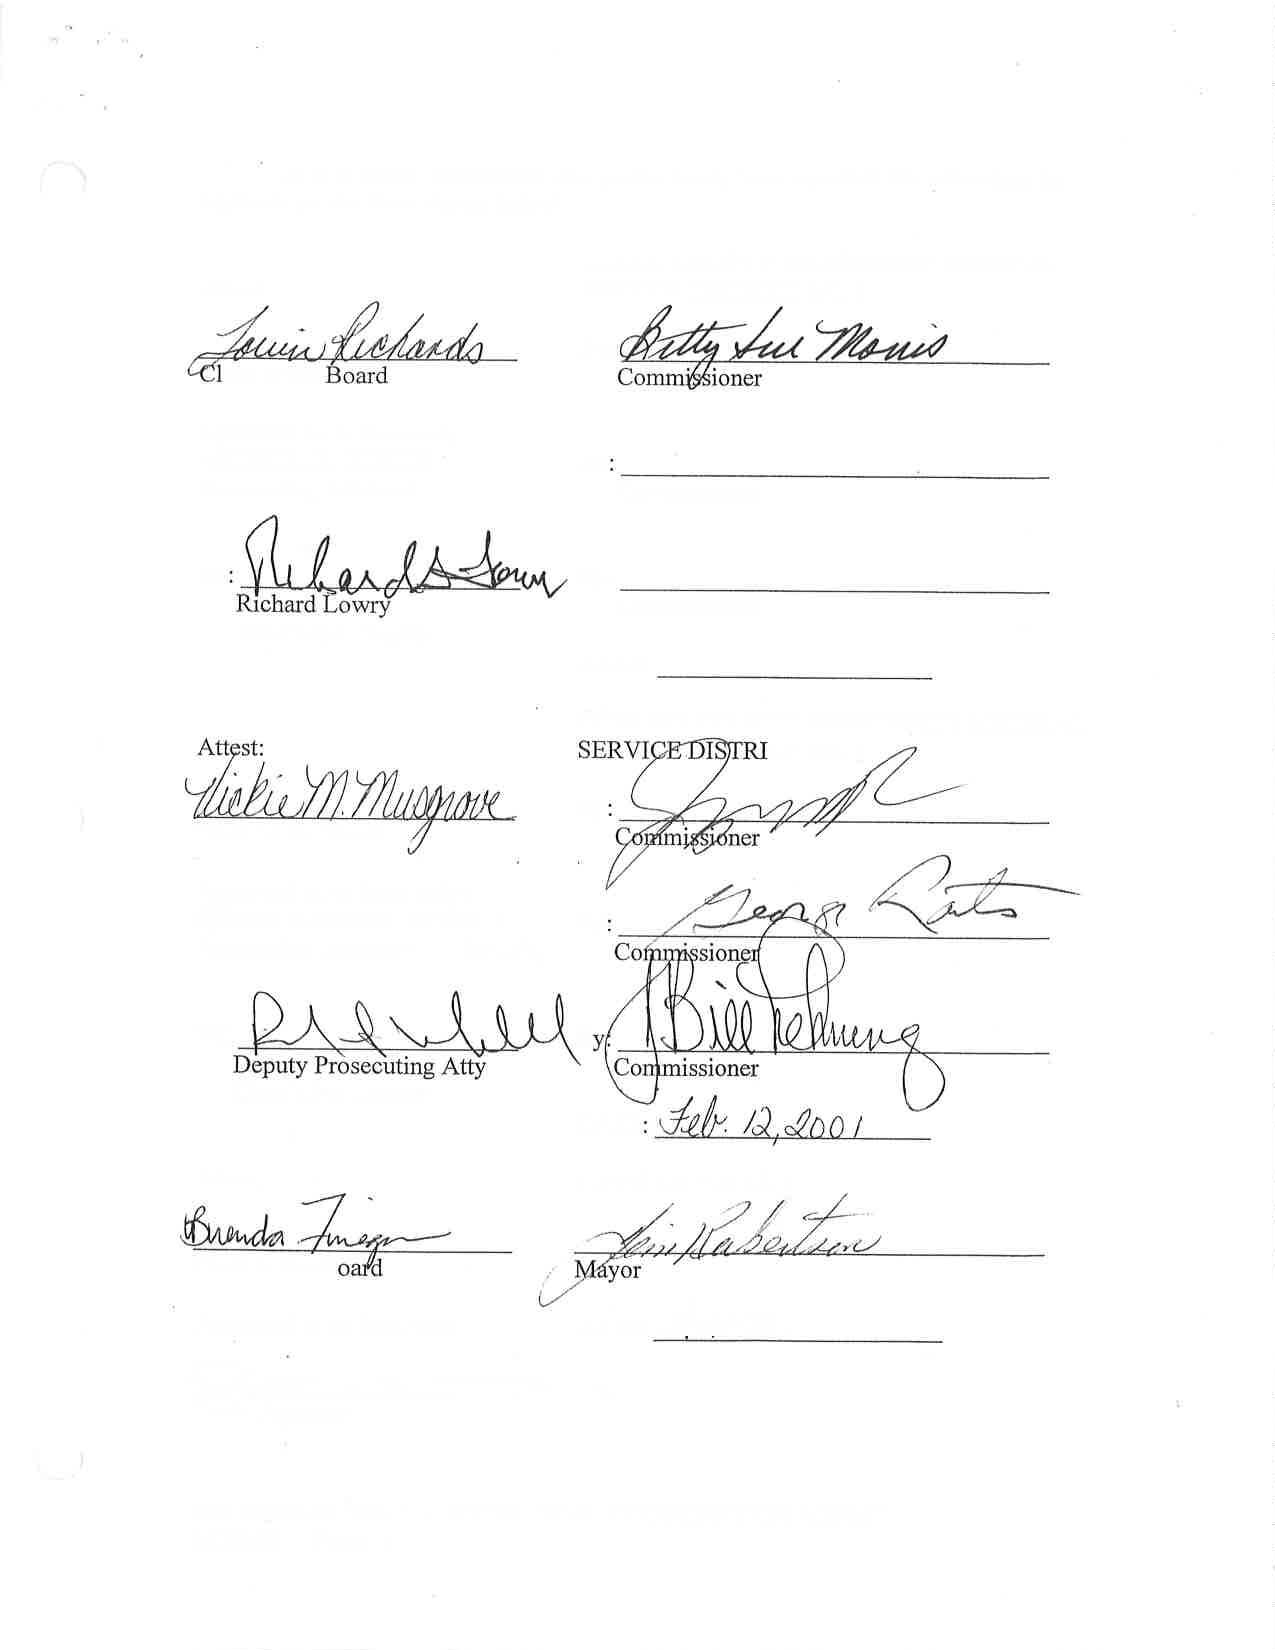 Louise Richards Betty Sue Morris
Cl Board Commissioner
:
: Richard S Lowry
Richard Lowry
Attest: SERVICE DISTRI
Vickie M. Musgrove :
Commissioner
: George Raiter
Commissioner
y: Bill Lehning
Deputy Prosecuting Atty Commissioner
: Feb. 12, 2001
Brenda
oard Mayor
Robertson